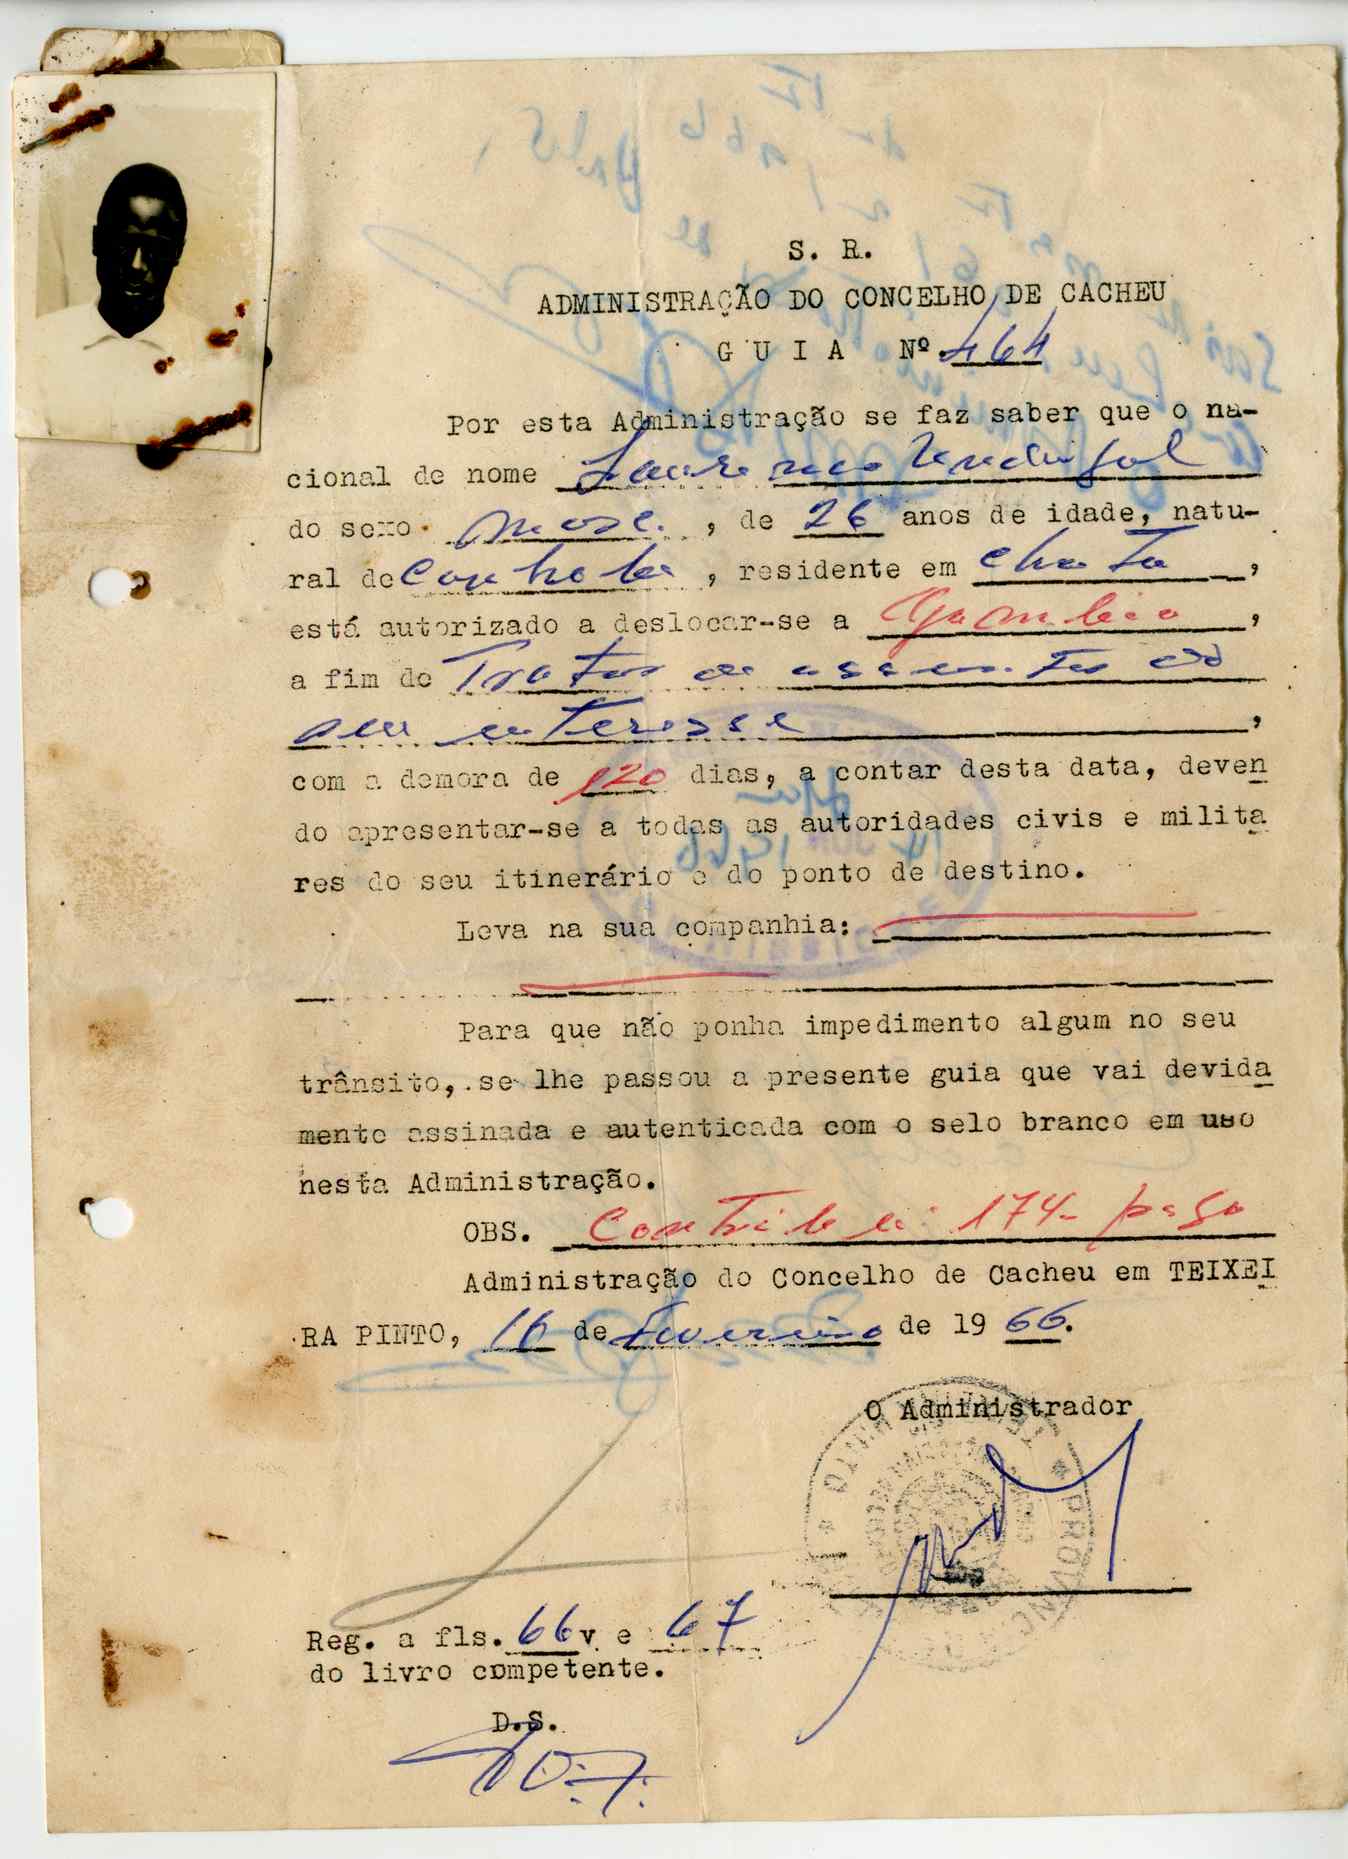 S. R.
ADMINISTRAÇÃO DO CONCELHO DE CACHEU
GUIA Nº 464
Por esta Administração se faz saber que o na-
cional de nome
do sexo masc. , de 26 anos de idade, natu-
ral de , residente em ,
está autorizado a deslocar-se a Gambia ,
a fim de Tratar de assuntos do
seu interesse ,
com a demora de 120 dias, a contar desta data, deven
do apresentar-se a todas as autoridades civis e milita
res do seu itinerário e do ponto de destino.
Leva na sua companhia:
Para que não ponha impedimento algum no seu
trânsito, se lhe passou a presente guia que vai devida
mente assinada e autenticada com o selo branco em uso
nesta Administração.
OBS. 174- pago
Administração do Concelho de Cacheu em TEIXEI
RA PINTO, 16 de Fevereiro de 1966.
O Administrador
Reg. a fls. 66 v e 67
do livro competente.
D.S.